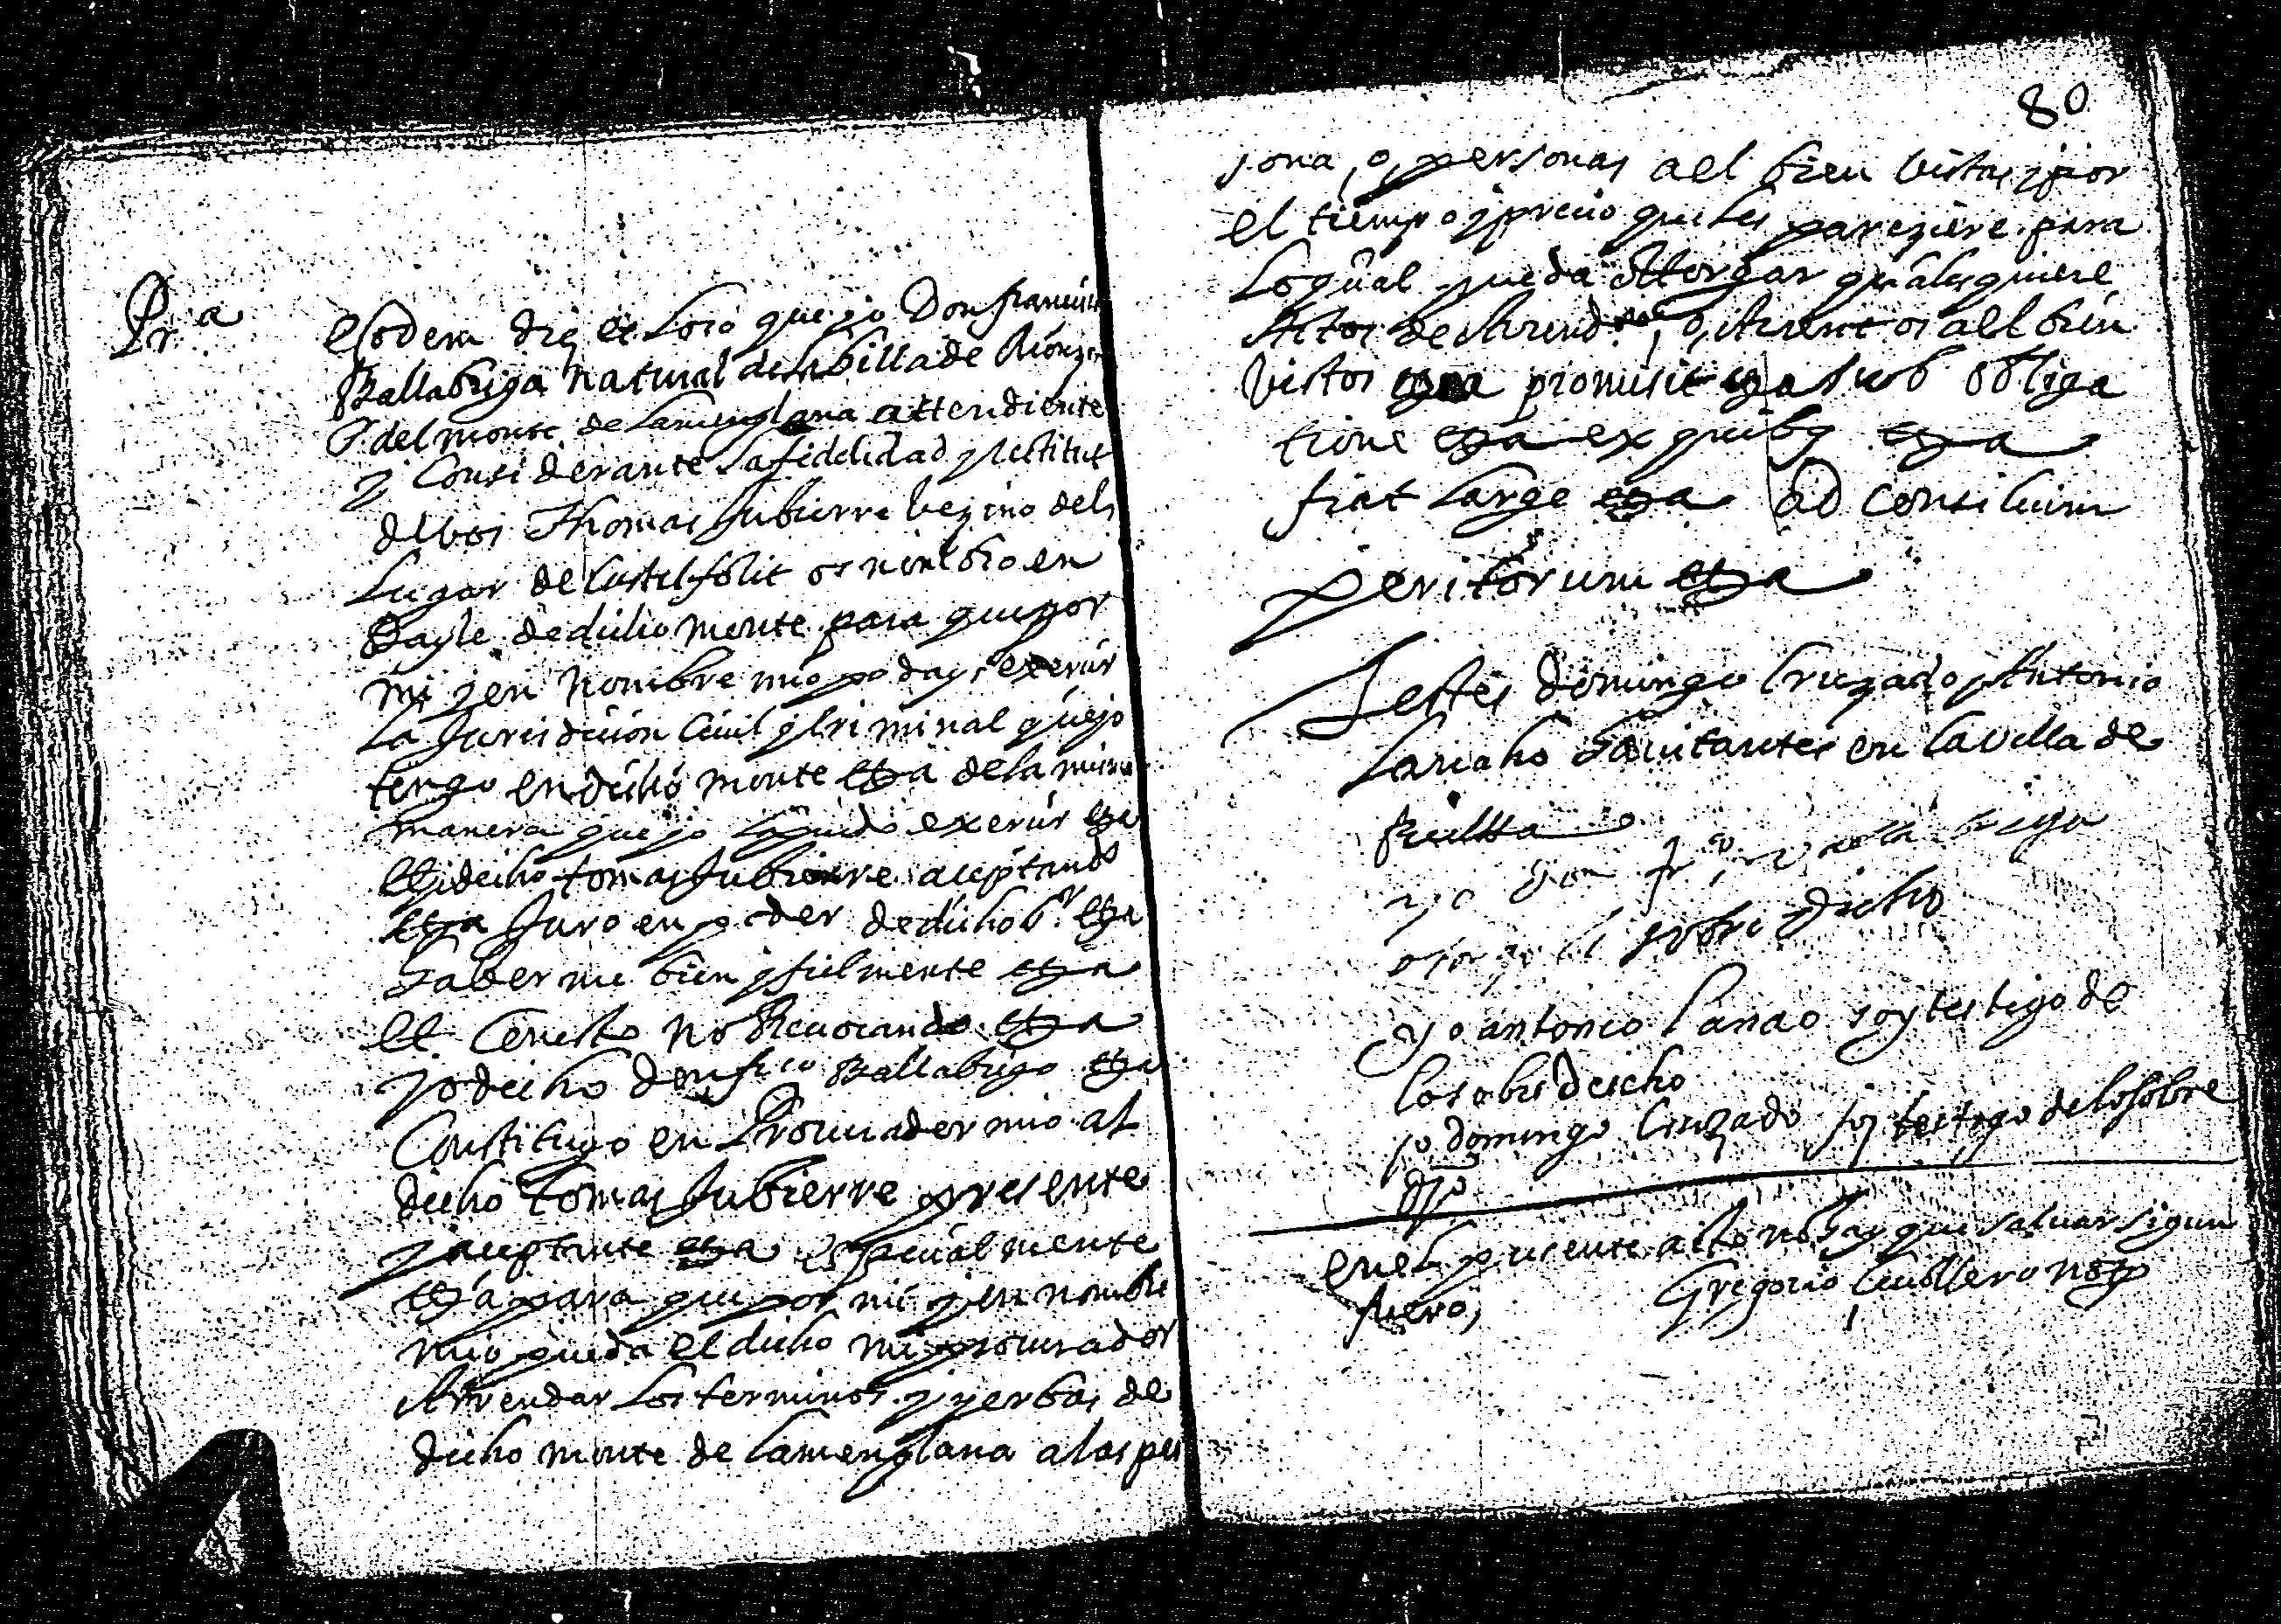 Pr.ª
Esodem die et Loco que yo Don francisco
Ballabriga natural de la billa de Monzon
S.r del monte de Lamenglana attendiente
y Considerante La fidelidad y Rectitut
de vos Thomas Jubierre bezino del
Lugar de Castelfolit os nombro en
Bayle de dicho monte para que por
mi y en nombre mio podays exercir
La Jurisdicion Civil y Criminal que yo
tengo en dicho monte etza de la misma
manera que yo la puedo exercir etza
et dicho tomas Jubierre aceptando
etza Juro en poder de dicho S.r etza
Haberme bien y fielmente etza
et Cenesto no Revocando etza
yo dicho don fr.co Ballabriga etza
Constituyo en Procurador mio al
dicho tomas Jubierre presente
y aceptante etza especialmente
etza para que por mi y en nombre
mio pueda el dicho mi procurador
Arrendar Los terminos y yerbas de
dicho monte de Lamenglana a las per
80
sona, o, personas a el bien vistas y por
el tiempo y precio que les pareziere para
Lo qual pueda Ottorgar qualesquiere
Actos de Arrend.on, o, Acientos a el bien
vistos etza promisit etza sub obliga
tione etza ex quibus etza
fiat Large etza ad consilium
peritorum etza
Testes Domingo Cruzado y Antonio
Lariaho havitantes en la villa de
fuillta
yo don fr.co vallabriga
otorgo lo sobre dicho
yo antonio Lanao soy testigo de
lo sobre dicho
yo domingo Cruzado soy testigo de lo sobre
dho
en el presente acto no hay que salvar sigun
fuero,
Gregorio Cavllero not.o